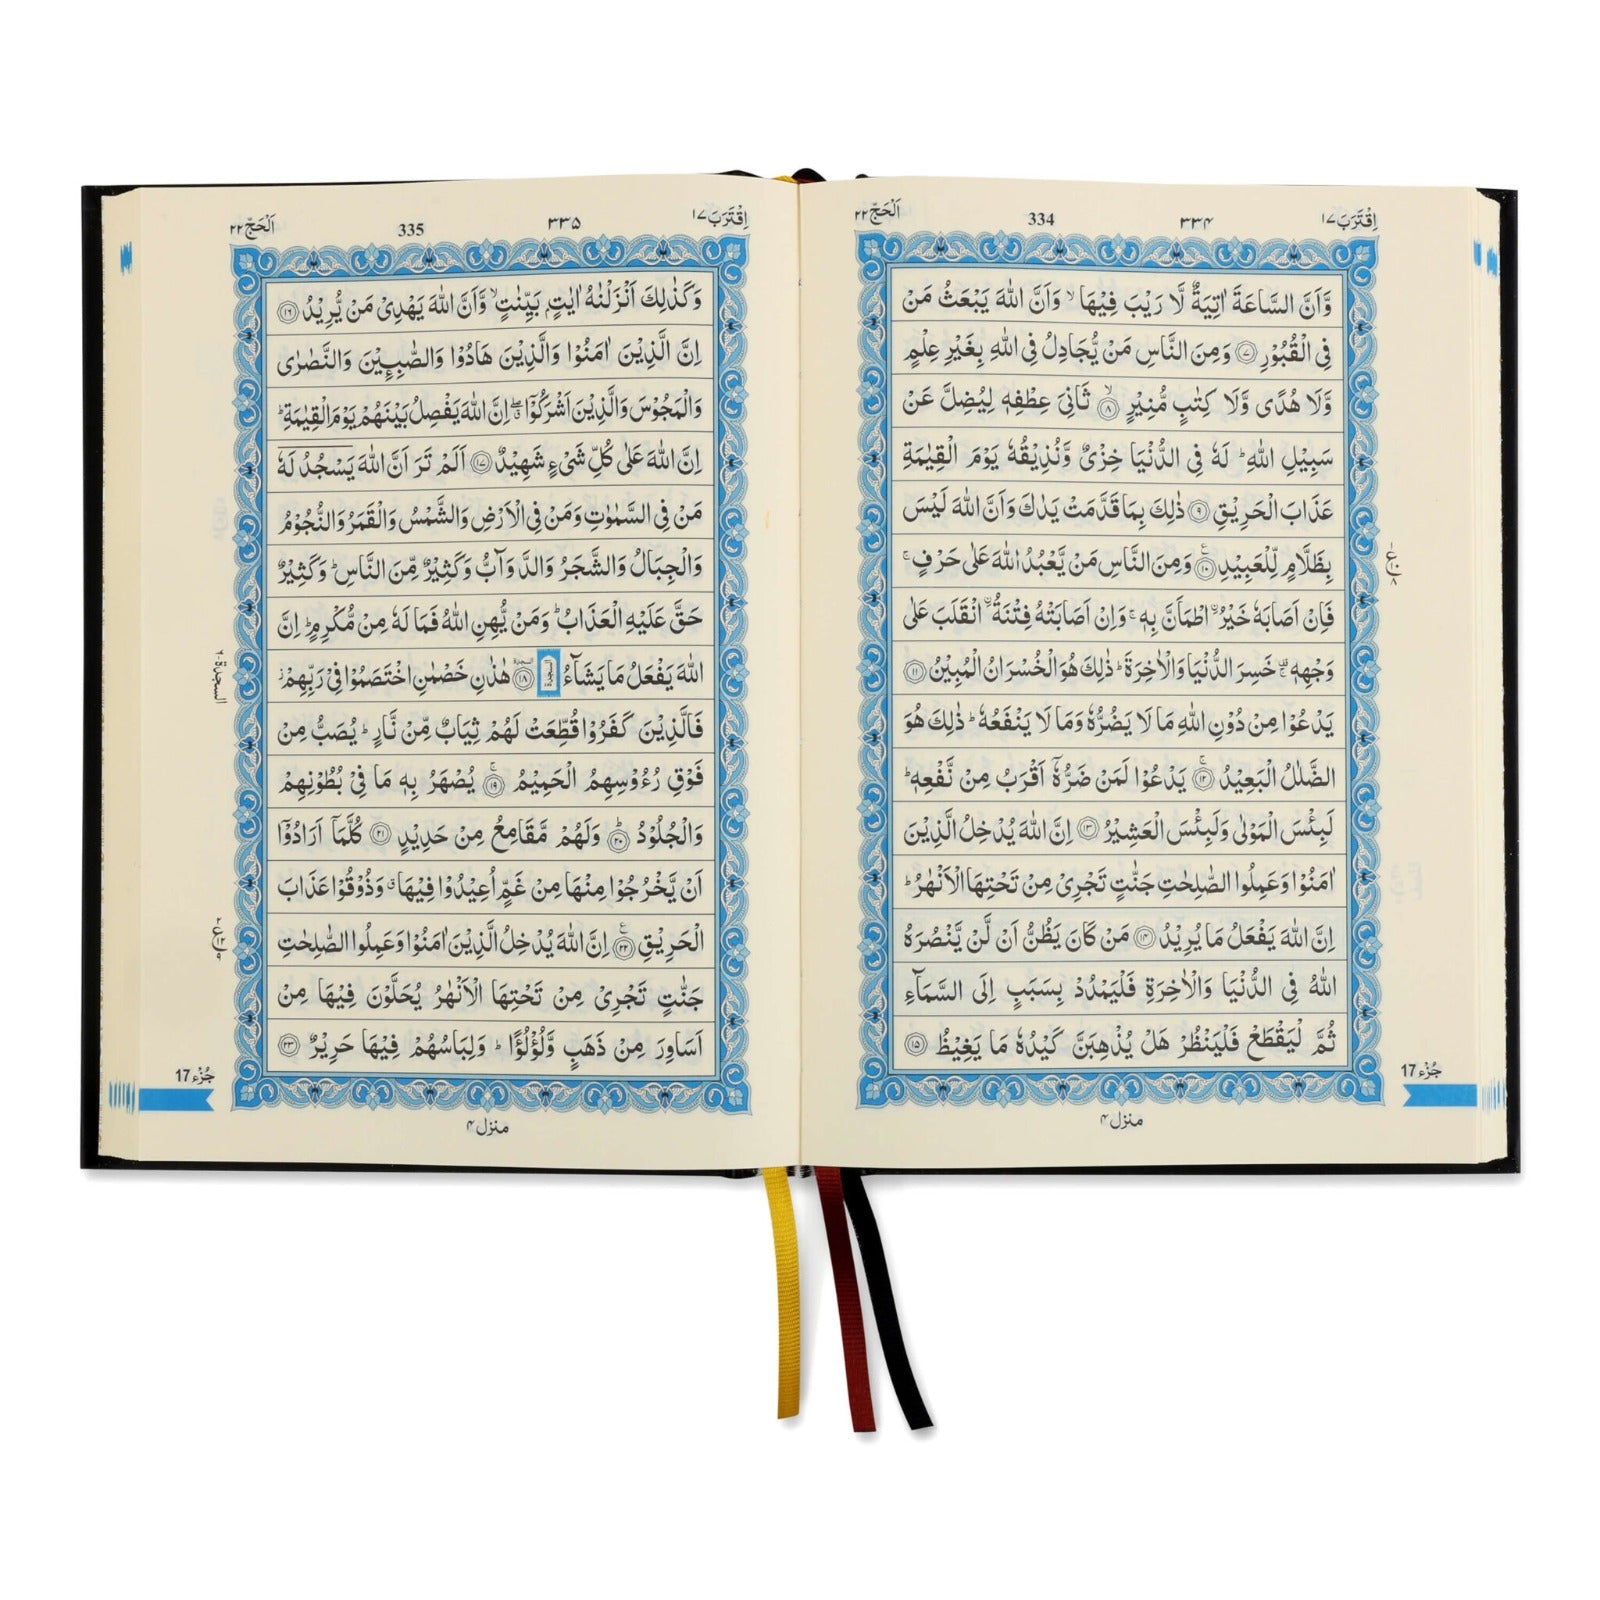 اِقْتَرَبَ ١٧
٣٣۴
334
اَلْحَجّ ٢٢
وَّاَنَّ السَّاعَةَ اٰتِيَةٌ لَّا رَيْبَ فِيْهَا ۙ وَاَنَّ اللّٰهَ يَبْعَثُ مَنْ
فِى الْقُبُوْرِ ﴿٧﴾ وَمِنَ النَّاسِ مَنْ يُّجَادِلُ فِى اللّٰهِ بِغَيْرِ عِلْمٍ
وَّلَا هُدًى وَّلَا كِتٰبٍ مُّنِيْرٍ ۙ﴿٨﴾ ثَانِىَ عِطْفِهٖ لِيُضِلَّ عَنْ
سَبِيْلِ اللّٰهِ ؕ لَهٗ فِى الدُّنْيَا خِزْىٌ وَّنُذِيْقُهٗ يَوْمَ الْقِيٰمَةِ
عَذَابَ الْحَرِيْقِ ﴿٩﴾ ذٰلِكَ بِمَا قَدَّمَتْ يَدٰكَ وَاَنَّ اللّٰهَ لَيْسَ
بِظَلَّامٍ لِّلْعَبِيْدِ ﴿١٠﴾ وَمِنَ النَّاسِ مَنْ يَّعْبُدُ اللّٰهَ عَلٰى حَرْفٍ ۚ
فَاِنْ اَصَابَهٗ خَيْرُ ۨاطْمَاَنَّ بِهٖ ۚ وَاِنْ اَصَابَتْهُ فِتْنَةُ ۨانْقَلَبَ عَلٰى
وَجْهِهٖ ۚ خَسِرَ الدُّنْيَا وَالْاٰخِرَةَ ؕ ذٰلِكَ هُوَ الْخُسْرَانُ الْمُبِيْنُ ﴿١١﴾
يَدْعُوْا مِنْ دُوْنِ اللّٰهِ مَا لَا يَضُرُّهٗ وَمَا لَا يَنْفَعُهٗ ؕ ذٰلِكَ هُوَ
الضَّلٰلُ الْبَعِيْدُ ۚ﴿١٢﴾ يَدْعُوْا لَمَنْ ضَرُّهٗۤ اَقْرَبُ مِنْ نَّفْعِهٖ ؕ
لَبِئْسَ الْمَوْلٰى وَلَبِئْسَ الْعَشِيْرُ ﴿١٣﴾ اِنَّ اللّٰهَ يُدْخِلُ الَّذِيْنَ
اٰمَنُوْا وَعَمِلُوا الصّٰلِحٰتِ جَنّٰتٍ تَجْرِىْ مِنْ تَحْتِهَا الْاَنْهٰرُ ؕ
اِنَّ اللّٰهَ يَفْعَلُ مَا يُرِيْدُ ﴿١٤﴾ مَنْ كَانَ يَظُنُّ اَنْ لَّنْ يَّنْصُرَهُ
اللّٰهُ فِى الدُّنْيَا وَالْاٰخِرَةِ فَلْيَمْدُدْ بِسَبَبٍ اِلَى السَّمَآءِ
ثُمَّ لْيَقْطَعْ فَلْيَنْظُرْ هَلْ يُذْهِبَنَّ كَيْدُهٗ مَا يَغِيْظُ ﴿١٥﴾
جُزْء 17
منزل ۴
اِقْتَرَبَ ١٧
٣٣۵
335
اَلْحَجّ ٢٢
وَكَذٰلِكَ اَنْزَلْنٰهُ اٰيٰتٍۭ بَيِّنٰتٍ ۙ وَّاَنَّ اللّٰهَ يَهْدِىْ مَنْ يُّرِيْدُ ﴿١٦﴾
اِنَّ الَّذِيْنَ اٰمَنُوْا وَالَّذِيْنَ هَادُوْا وَالصّٰبِـِٕيْنَ وَالنَّصٰرٰى
وَالْمَجُوْسَ وَالَّذِيْنَ اَشْرَكُوْۤا ۖۗ اِنَّ اللّٰهَ يَفْصِلُ بَيْنَهُمْ يَوْمَ الْقِيٰمَةِ ؕ
اِنَّ اللّٰهَ عَلٰى كُلِّ شَىْءٍ شَهِيْدٌ ﴿١٧﴾ اَلَمْ تَرَ اَنَّ اللّٰهَ يَسْجُدُ لَهٗ
مَنْ فِى السَّمٰوٰتِ وَمَنْ فِى الْاَرْضِ وَالشَّمْسُ وَالْقَمَرُ وَالنُّجُوْمُ
وَالْجِبَالُ وَالشَّجَرُ وَالدَّوَآبُّ وَكَثِيْرٌ مِّنَ النَّاسِ ؕ وَكَثِيْرٌ
حَقَّ عَلَيْهِ الْعَذَابُ ؕ وَمَنْ يُّهِنِ اللّٰهُ فَمَا لَهٗ مِنْ مُّكْرِمٍ ؕ اِنَّ
اللّٰهَ يَفْعَلُ مَا يَشَآءُ السجدة ﴿١٨﴾ هٰذٰنِ خَصْمٰنِ اخْتَصَمُوْا فِىْ رَبِّهِمْ ز
فَالَّذِيْنَ كَفَرُوْا قُطِّعَتْ لَهُمْ ثِيَابٌ مِّنْ نَّارٍ ؕ يُصَبُّ مِنْ
فَوْقِ رُءُوْسِهِمُ الْحَمِيْمُ ۚ﴿١٩﴾ يُصْهَرُ بِهٖ مَا فِىْ بُطُوْنِهِمْ
وَالْجُلُوْدُ ؕ﴿٢٠﴾ وَلَهُمْ مَّقَامِعُ مِنْ حَدِيْدٍ ﴿٢١﴾ كُلَّمَاۤ اَرَادُوْۤا
اَنْ يَّخْرُجُوْا مِنْهَا مِنْ غَمٍّ اُعِيْدُوْا فِيْهَا ۗ وَذُوْقُوْا عَذَابَ
الْحَرِيْقِ ﴿٢٢﴾ اِنَّ اللّٰهَ يُدْخِلُ الَّذِيْنَ اٰمَنُوْا وَعَمِلُوا الصّٰلِحٰتِ
جَنّٰتٍ تَجْرِىْ مِنْ تَحْتِهَا الْاَنْهٰرُ يُحَلَّوْنَ فِيْهَا مِنْ
اَسَاوِرَ مِنْ ذَهَبٍ وَّلُؤْلُؤًا ؕ وَلِبَاسُهُمْ فِيْهَا حَرِيْرٌ ﴿٢٣﴾
السجدة ٦
جُزْء 17
منزل ۴